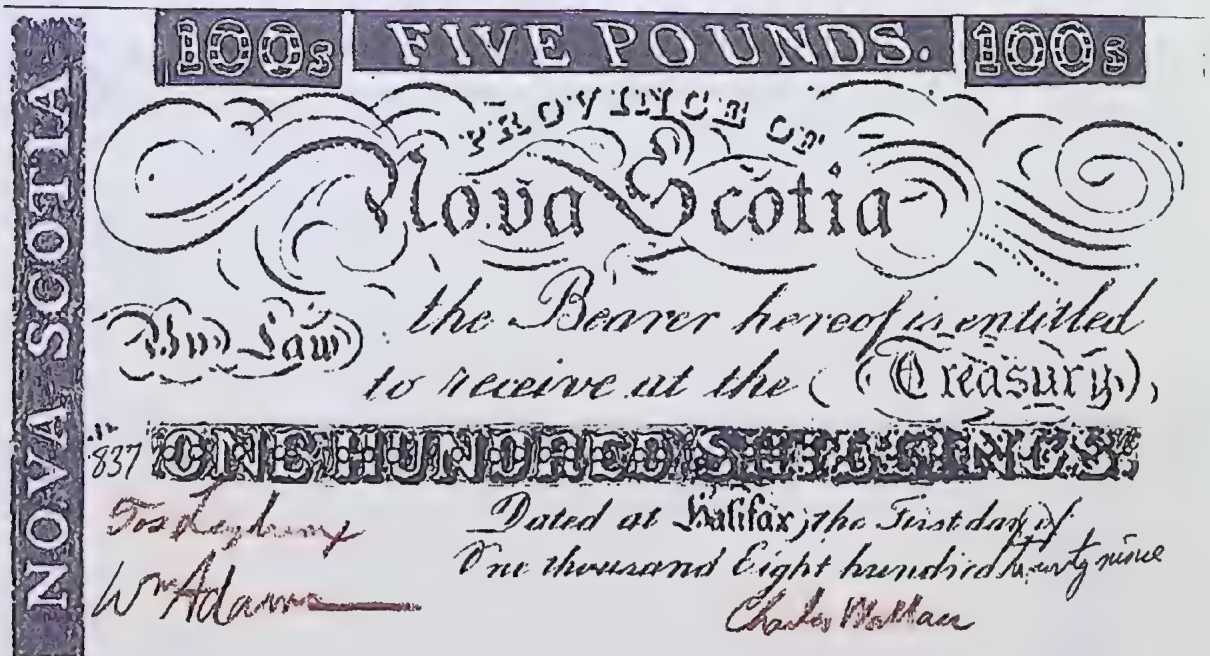 NOVA SCOTIA
100s FIVE POUNDS. 100s
PROVINCE OF
Nova Scotia
By Law the Bearer hereof is entitled
to receive at the Treasury,
837 ONE HUNDRED SHILLINGS.
Dated at Halifax, the First day of
One thousand Eight hundred twenty nine
Wm Adams
Charles Wallace